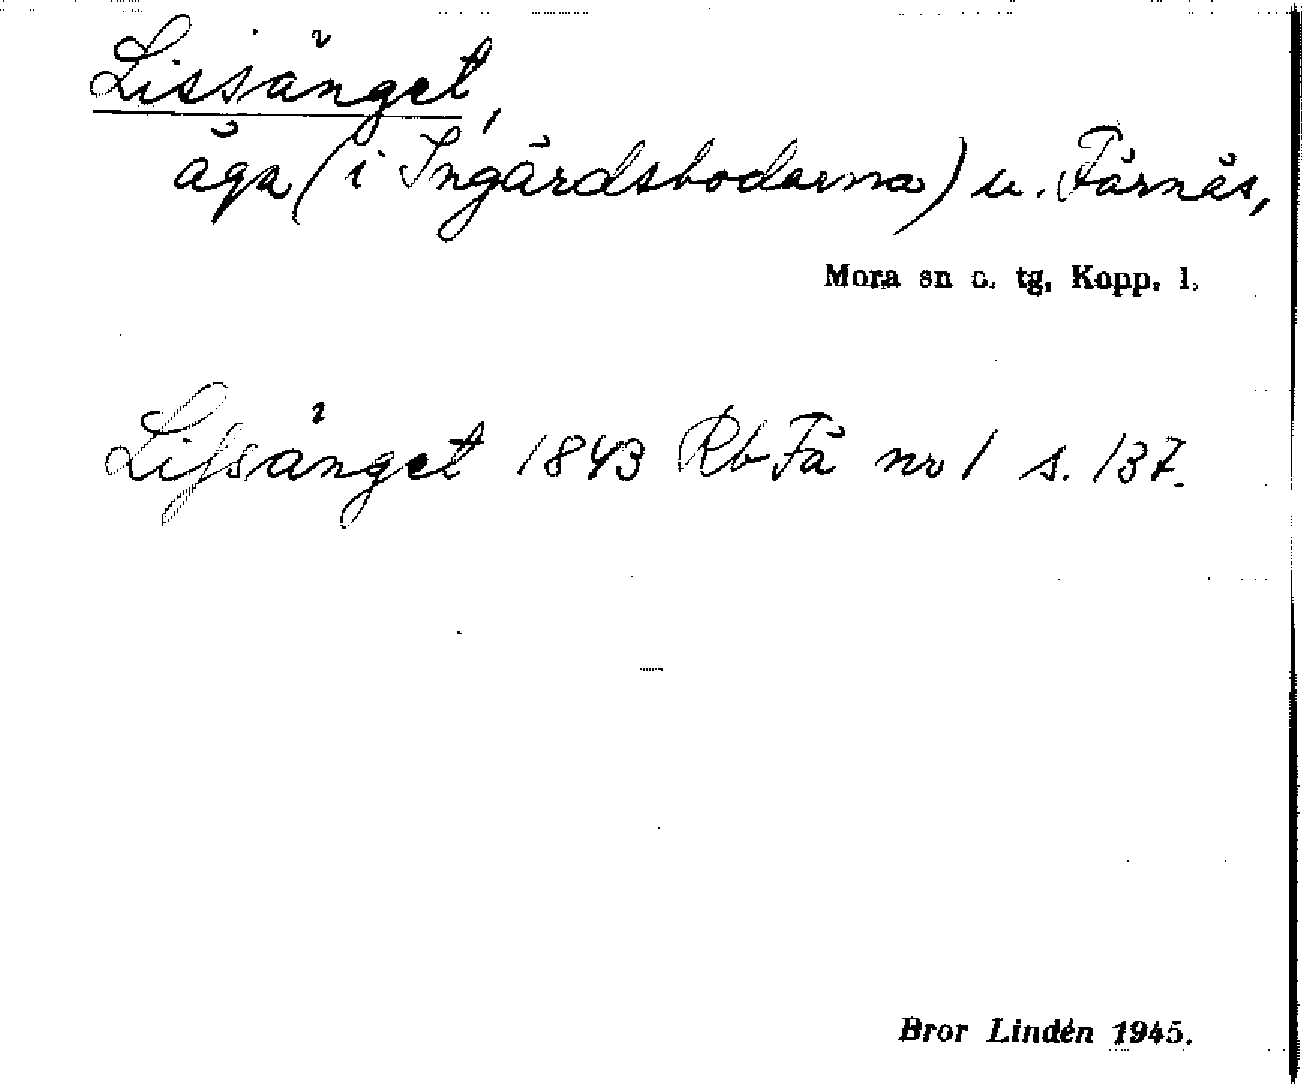 Lissänget,
äga (i Ingärdsbodarna) u. Färnäs,
Mora sn o. tg, Kopp. l.
Lissänget 1843 Rb Fä nr 1 s. 137.
Bror Lindén 1945.